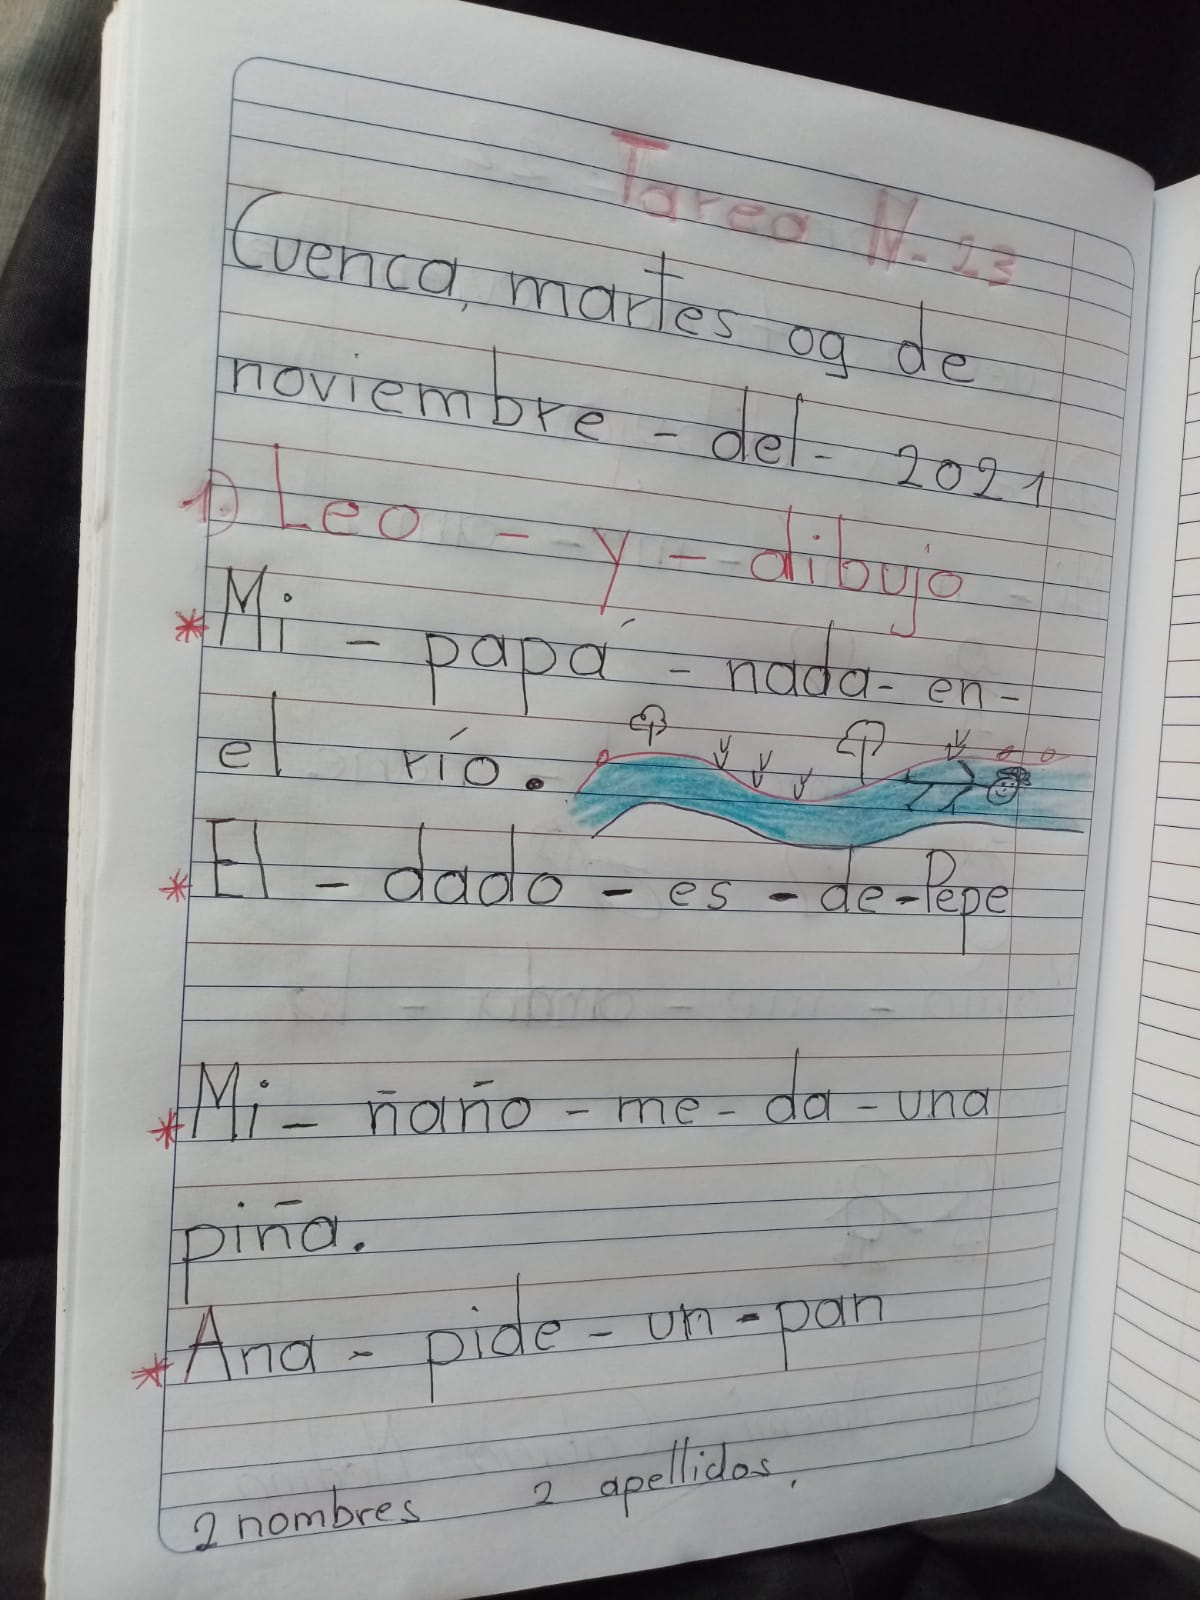 Tarea N- 23
Cuenca, martes 09 de
noviembre - del - 2021
1) Leo - y - dibujo
* Mi - papá - nada - en -
el río.
* El - dado - es - de - Pepe
* Mi - ñaño - me - da - una
piña.
* Ana - pide - un - pan
2 nombres 2 apellidos.